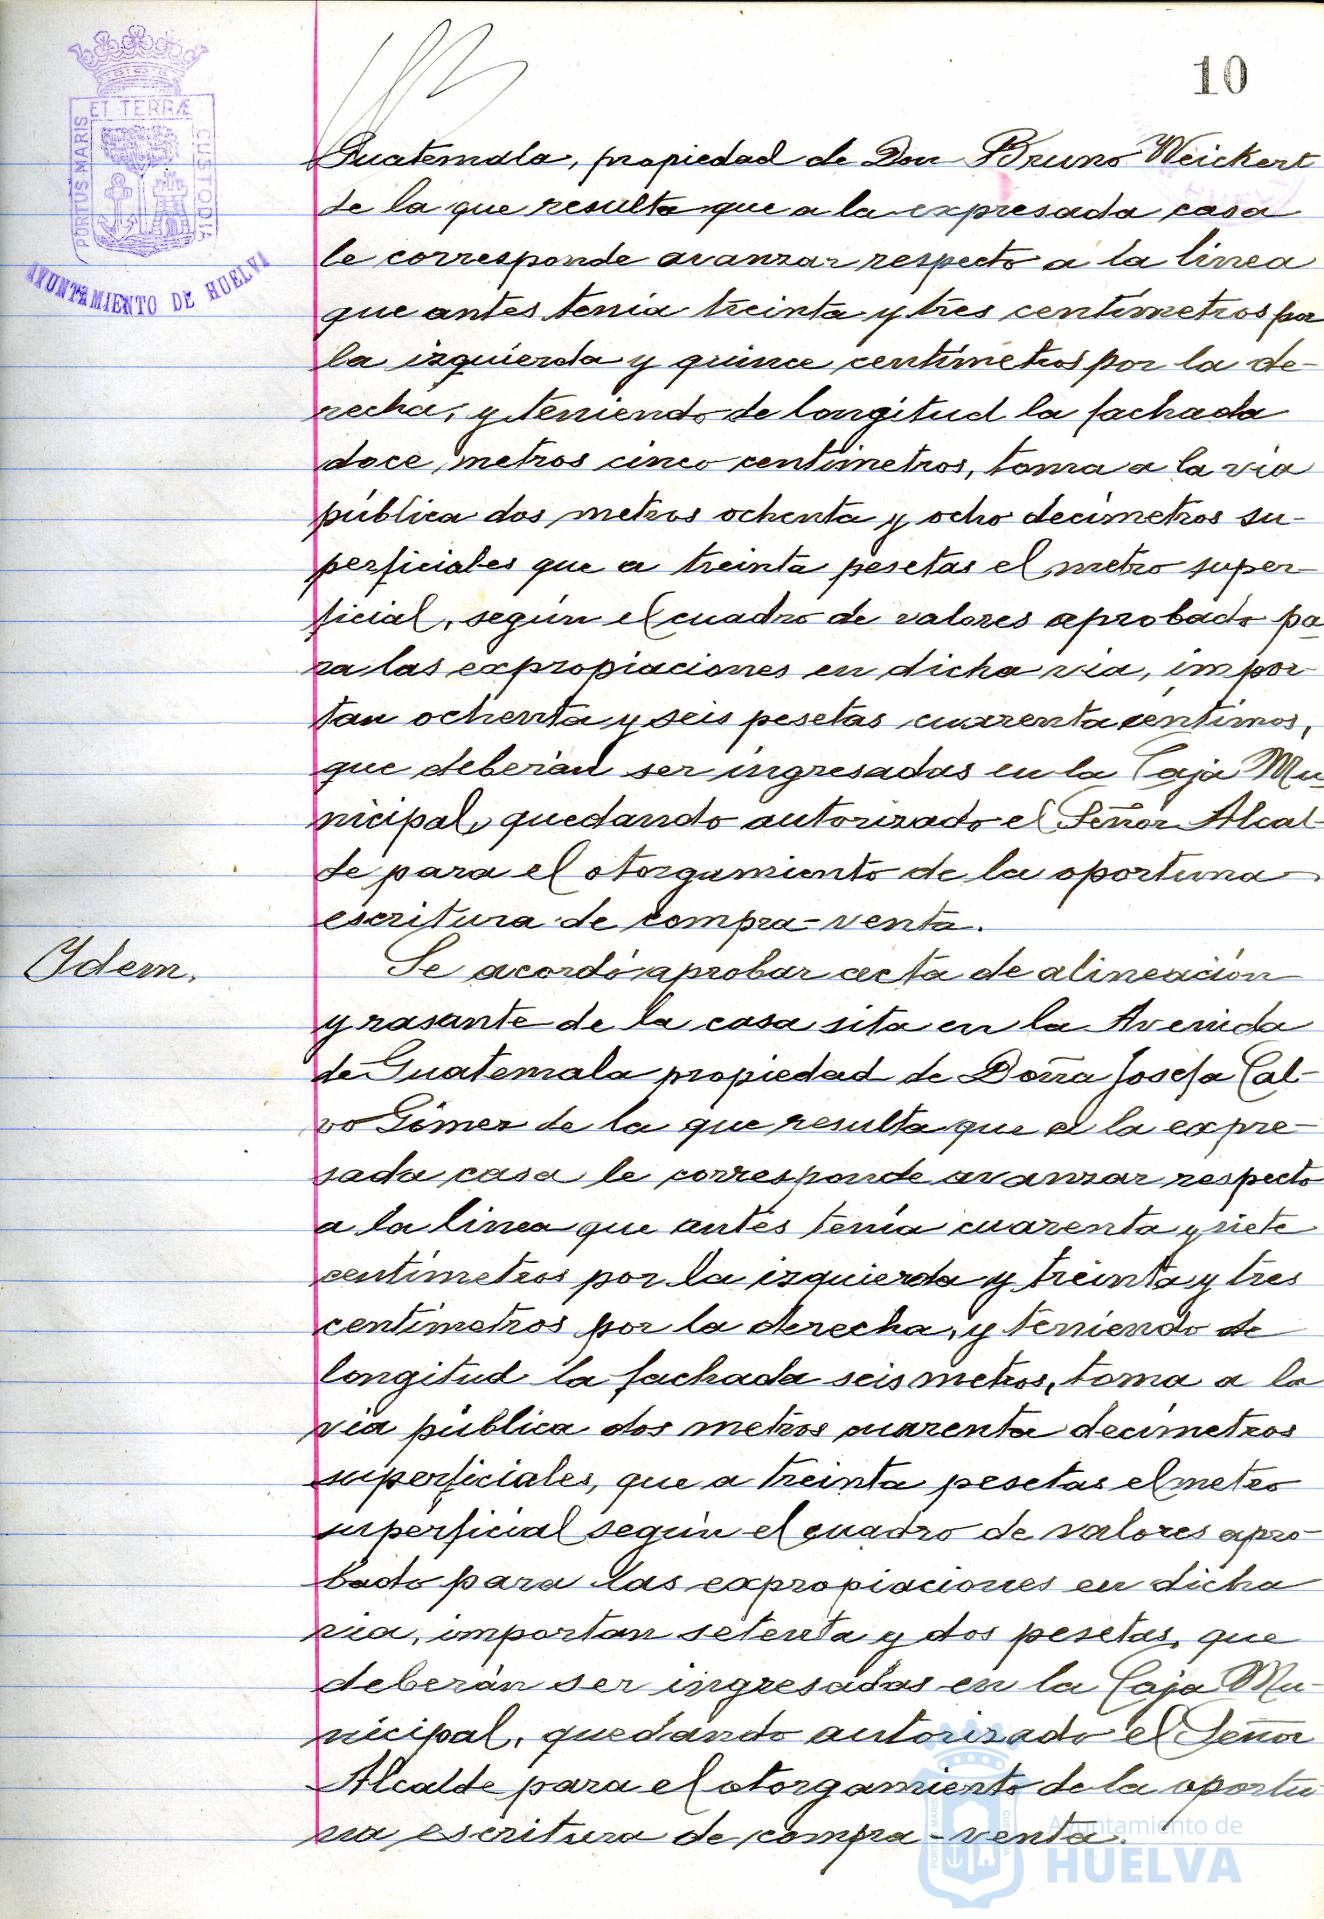 10
ET TERRÆ
PORTUS MARIS
CUSTODIA
AYUNTAMIENTO DE HUELVA
Guatemala, propiedad de Don Bruno Weickert
de la que resulta que a la expresada casa
le corresponde avanzar respecto a la línea
que antes tenía treinta y tres centímetros por
la izquierda y quince centímetros por la de-
recha, y teniendo de longitud la fachada
doce metros cinco centímetros, toma a la vía
pública dos metros ochenta y ocho decímetros su-
perficiales que a treinta pesetas el metro super-
ficial, según el cuadro de valores aprobado pa-
ra las expropiaciones en dicha vía, impor-
tan ochenta y seis pesetas cuarenta céntimos,
que deberán ser ingresadas en la Caja Mu-
nicipal, quedando autorizado el Señor Alcal-
de para el otorgamiento de la oportuna
escritura de compra-venta.
Ydem.
Se acordó aprobar acta de alineación
y rasante de la casa sita en la Avenida
de Guatemala propiedad de Doña Josefa Cal-
vo Gómez de la que resulta que a la expre-
sada casa le corresponde avanzar respecto
a la línea que antes tenía cuarenta y siete
centímetros por la izquierda y treinta y tres
centímetros por la derecha, y teniendo de
longitud la fachada seis metros, toma a la
vía pública dos metros cuarenta decímetros
superficiales, que a treinta pesetas el metro
superficial según el cuadro de valores apro-
bado para las expropiaciones en dicha
via, importan setenta y dos pesetas, que
deberán ser ingresadas en la Caja Mu-
nicipal, quedando autorizado el Señor
Alcalde para el otorgamiento de la oportu-
na escritura de compra-venta.
Ayuntamiento de
HUELVA